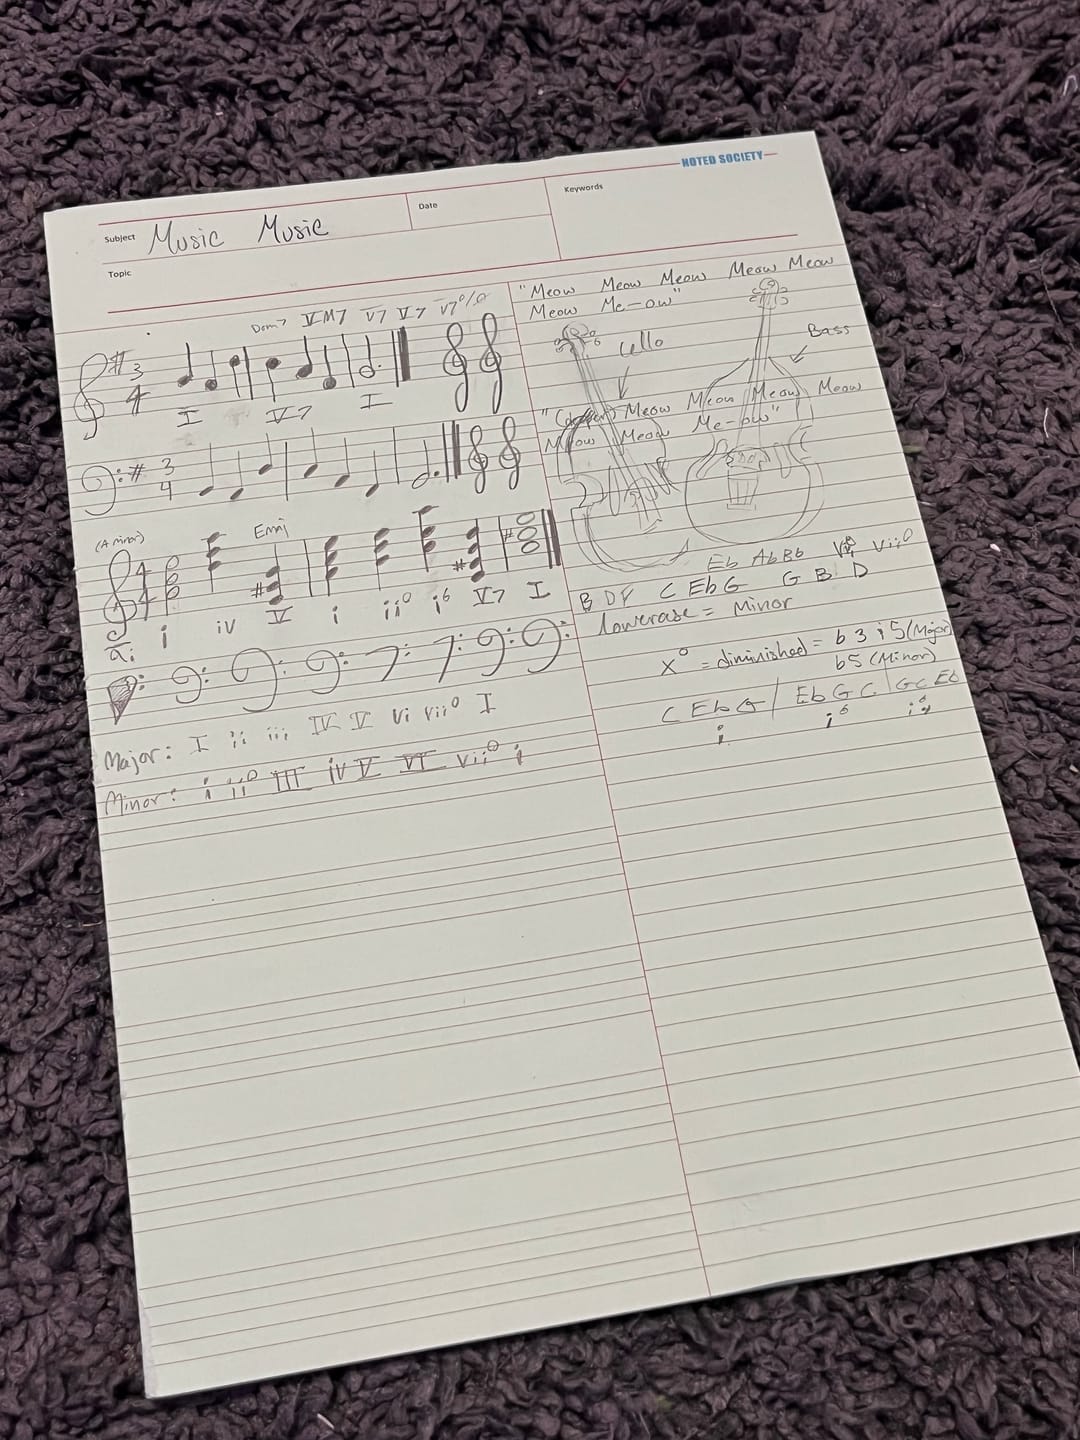 NOTED SOCIETY
Subject Music Music
Date
Keywords
Topic
Dom7 VM7 V7 V7 V7
# 3
4
I V7 I
# 3
4
(A minor) Emaj
4
4
a: i iv V i ii° i6 V7 I
Major: I ii iii IV V vi vii° I
Minor: i ii° III iv V VI vii° i
"Meow Meow Meow Meow Meow
Meow Me-ow"
Cello
Bass
Meow Meow Meow Meow
Meow Meow Me-ow"
Eb Ab Bb vii°
B D F C Eb G G B D
lowercase = Minor
x° = diminished = b3 i 5 (Major)
b5 (Minor)
C Eb G / Eb G C / G C Eb
i i6 i